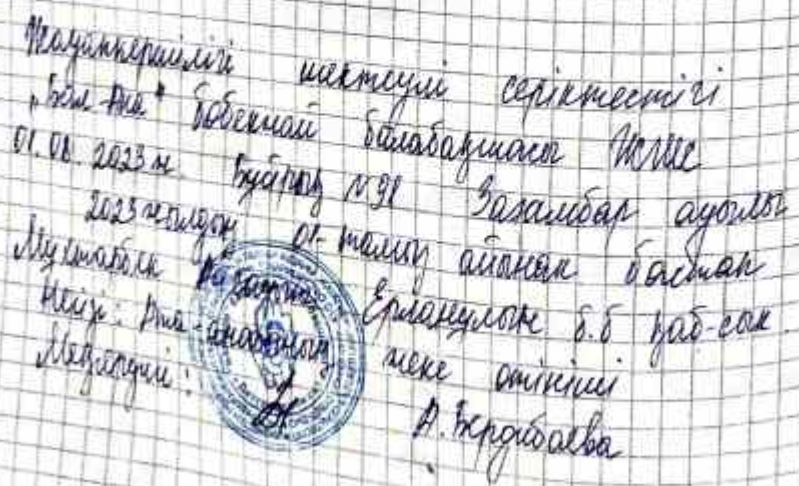 Жауапкершілігі шектеулі серіктестігі
"Бал-Ана" бөбекжай балабақшасы ЖШС
01.08.2023ж Бұйрық №91 Базамбар ауылы
2023 жылдың 01-тамыз айынан бастап
Ерланұлын б.б қаб-сын
Негізі: Ата-анасының жеке өтініші
Меңгеруші:
А. Бердібаева